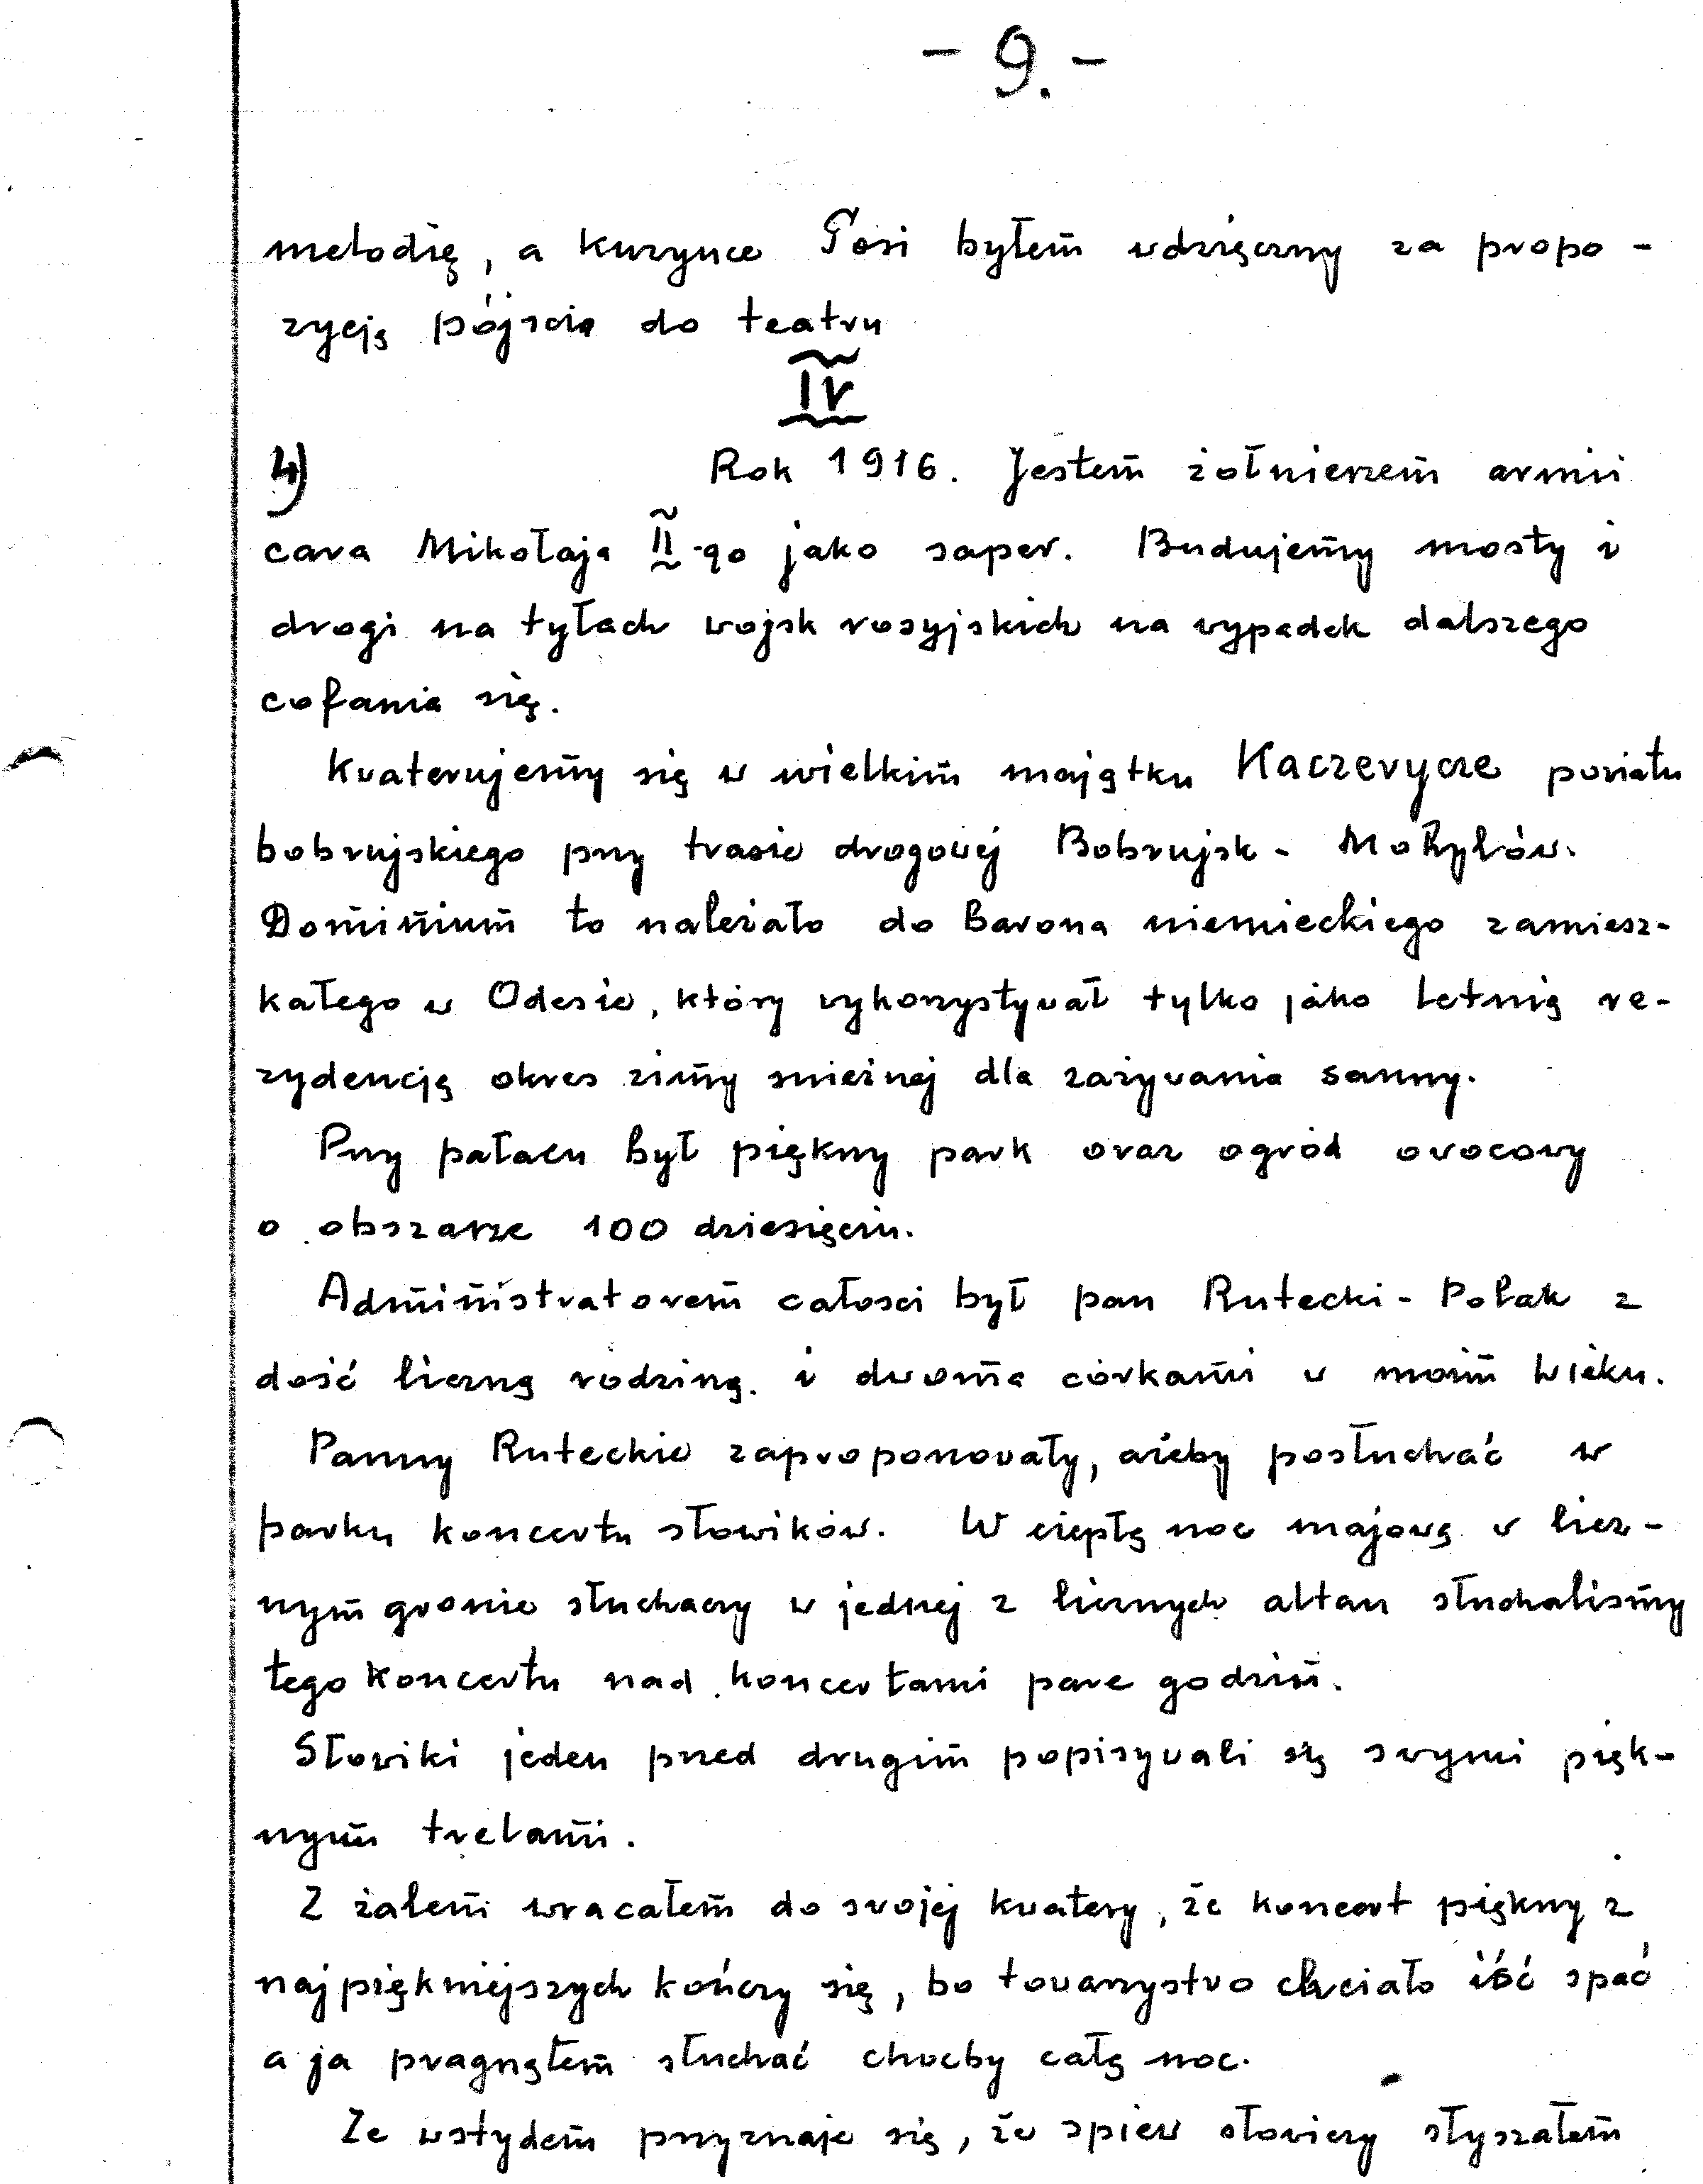 - 9. -
melodię, a kuzynce Tosi byłem wdzięczny za propo-
zycję pójścia do teatru
IV
4) Rok 1916. Jestem żołnierzem armii
cara Mikołaja II-go jako saper. Budujemy mosty i
drogi na tyłach wojsk rosyjskich na wypadek dalszego
cofania się.
Kwaterujemy się w wielkim majątku Kaczerycze powiatu
bobrujskiego przy trasie drogowej Bobrujsk - Mohylów.
Dominium to należało do Barona niemieckiego zamiesz-
kałego w Odesie, który wykorzystywał tylko jako letnią re-
zydencją okres zimy snieżnej dla zażywania sanny.
Przy pałacu był piękny park oraz ogród owocowy
o obszarze 100 dziesięcin.
Administratorem całosci był pan Rutecki - Polak z
dość liczną rodziną. i dwoma córkami w moim wieku.
Panny Ruteckie zaproponowały, ażeby posłuchać w
parku koncertu słowików. W ciepłą noc majową w licz-
nym gronie słuchaczy w jednej z licznych altan słuchalismy
tego koncertu nad koncertami pare godzin.
Słowiki jeden przed drugim popisywali się swymi pięk-
nym trelami.
Z żalem wracałem do swojej kwatery, że koncert piękny z
najpiękniejszych kończy się, bo towarzystwo chciało iść spać
a ja pragnąłem słuchać choćby całą noc.
Ze wstydem przyznaje się, że spiew słowiczy słyszałem